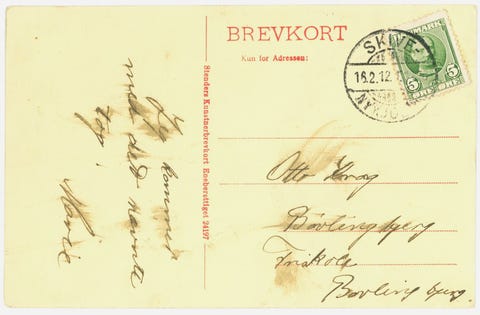 BREVKORT
Kun for Adressen:
SKIVE-
16.2.12
DANMARK
5 5
ØRE ØRE
Stenders Kunstnerbrevkort Eneberettiget 24197
Jeg kommer
med det nævnte
tog!
Marie
Otto Krog
Bøvlingbjerg
Friskole
Bøvling bjerg.